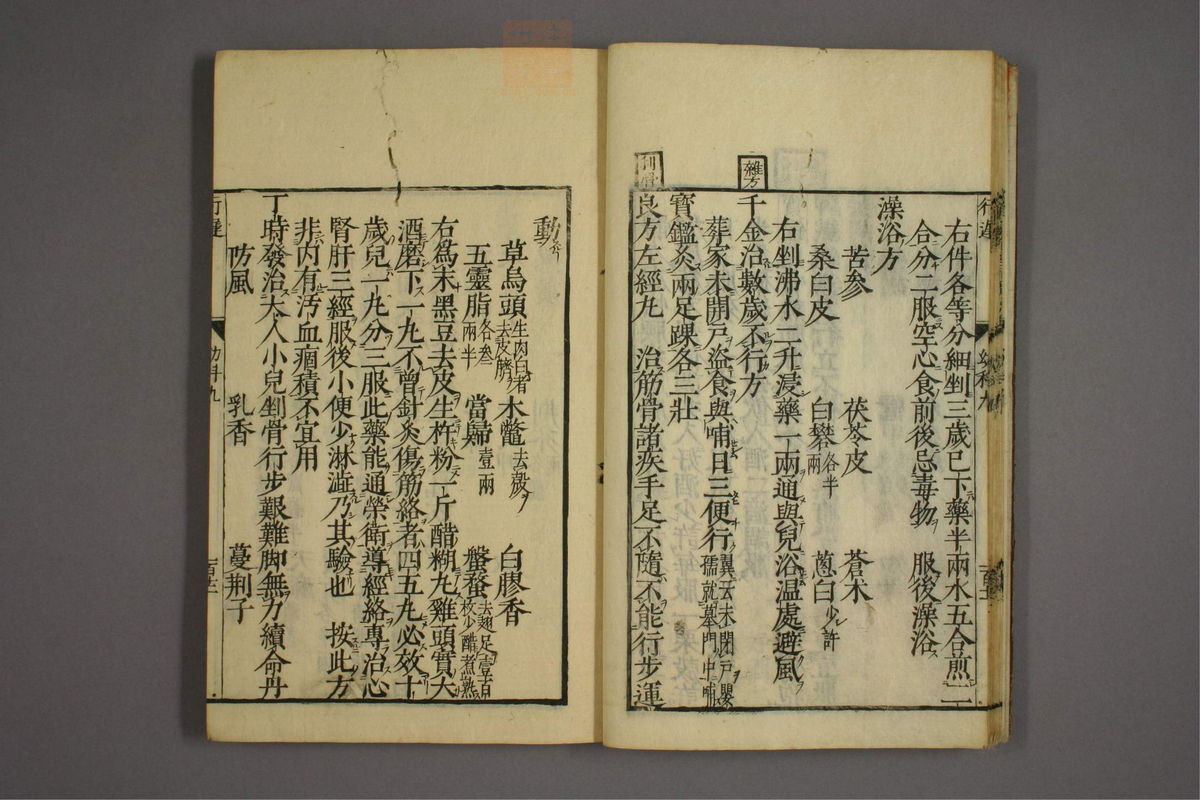 行遲
右件各等分細剉三歲已下藥半兩水五合煎一二
合分二服空心食前後忌毒物 服後澡浴
澡浴方
苦參 茯苓皮 蒼朮
桑白皮 白礬各半兩 蔥白少許
右剉沸水二升浸藥一兩通與兒浴温處避風
雜方
千金治數歲不行方
葬家未開戶盜食與哺日三便行
寶鑑灸兩足踝各三壯
良方左經丸 治筋骨諸疾手足不隨不能行步運
動
草烏頭生肉白者去皮臍 木鼈去殼 白膠香
五靈脂各叁兩半 當歸壹兩 螌蝥去翅足壹百枚少醋煮熟
右爲末黑豆去皮生杵粉一斤醋糊丸雞頭實大
酒磨下一丸不曾針灸傷筋絡者四五丸必效十
歲兒一丸分三服此藥能通榮衛導經絡專治心
腎肝三經服後小便少淋澁乃其驗也 按此方
非內有活血痼積不宜用
丁時發治大人小兒剉骨行步艱難脚無力續命丹
防風 乳香 蔓荆子
行遲